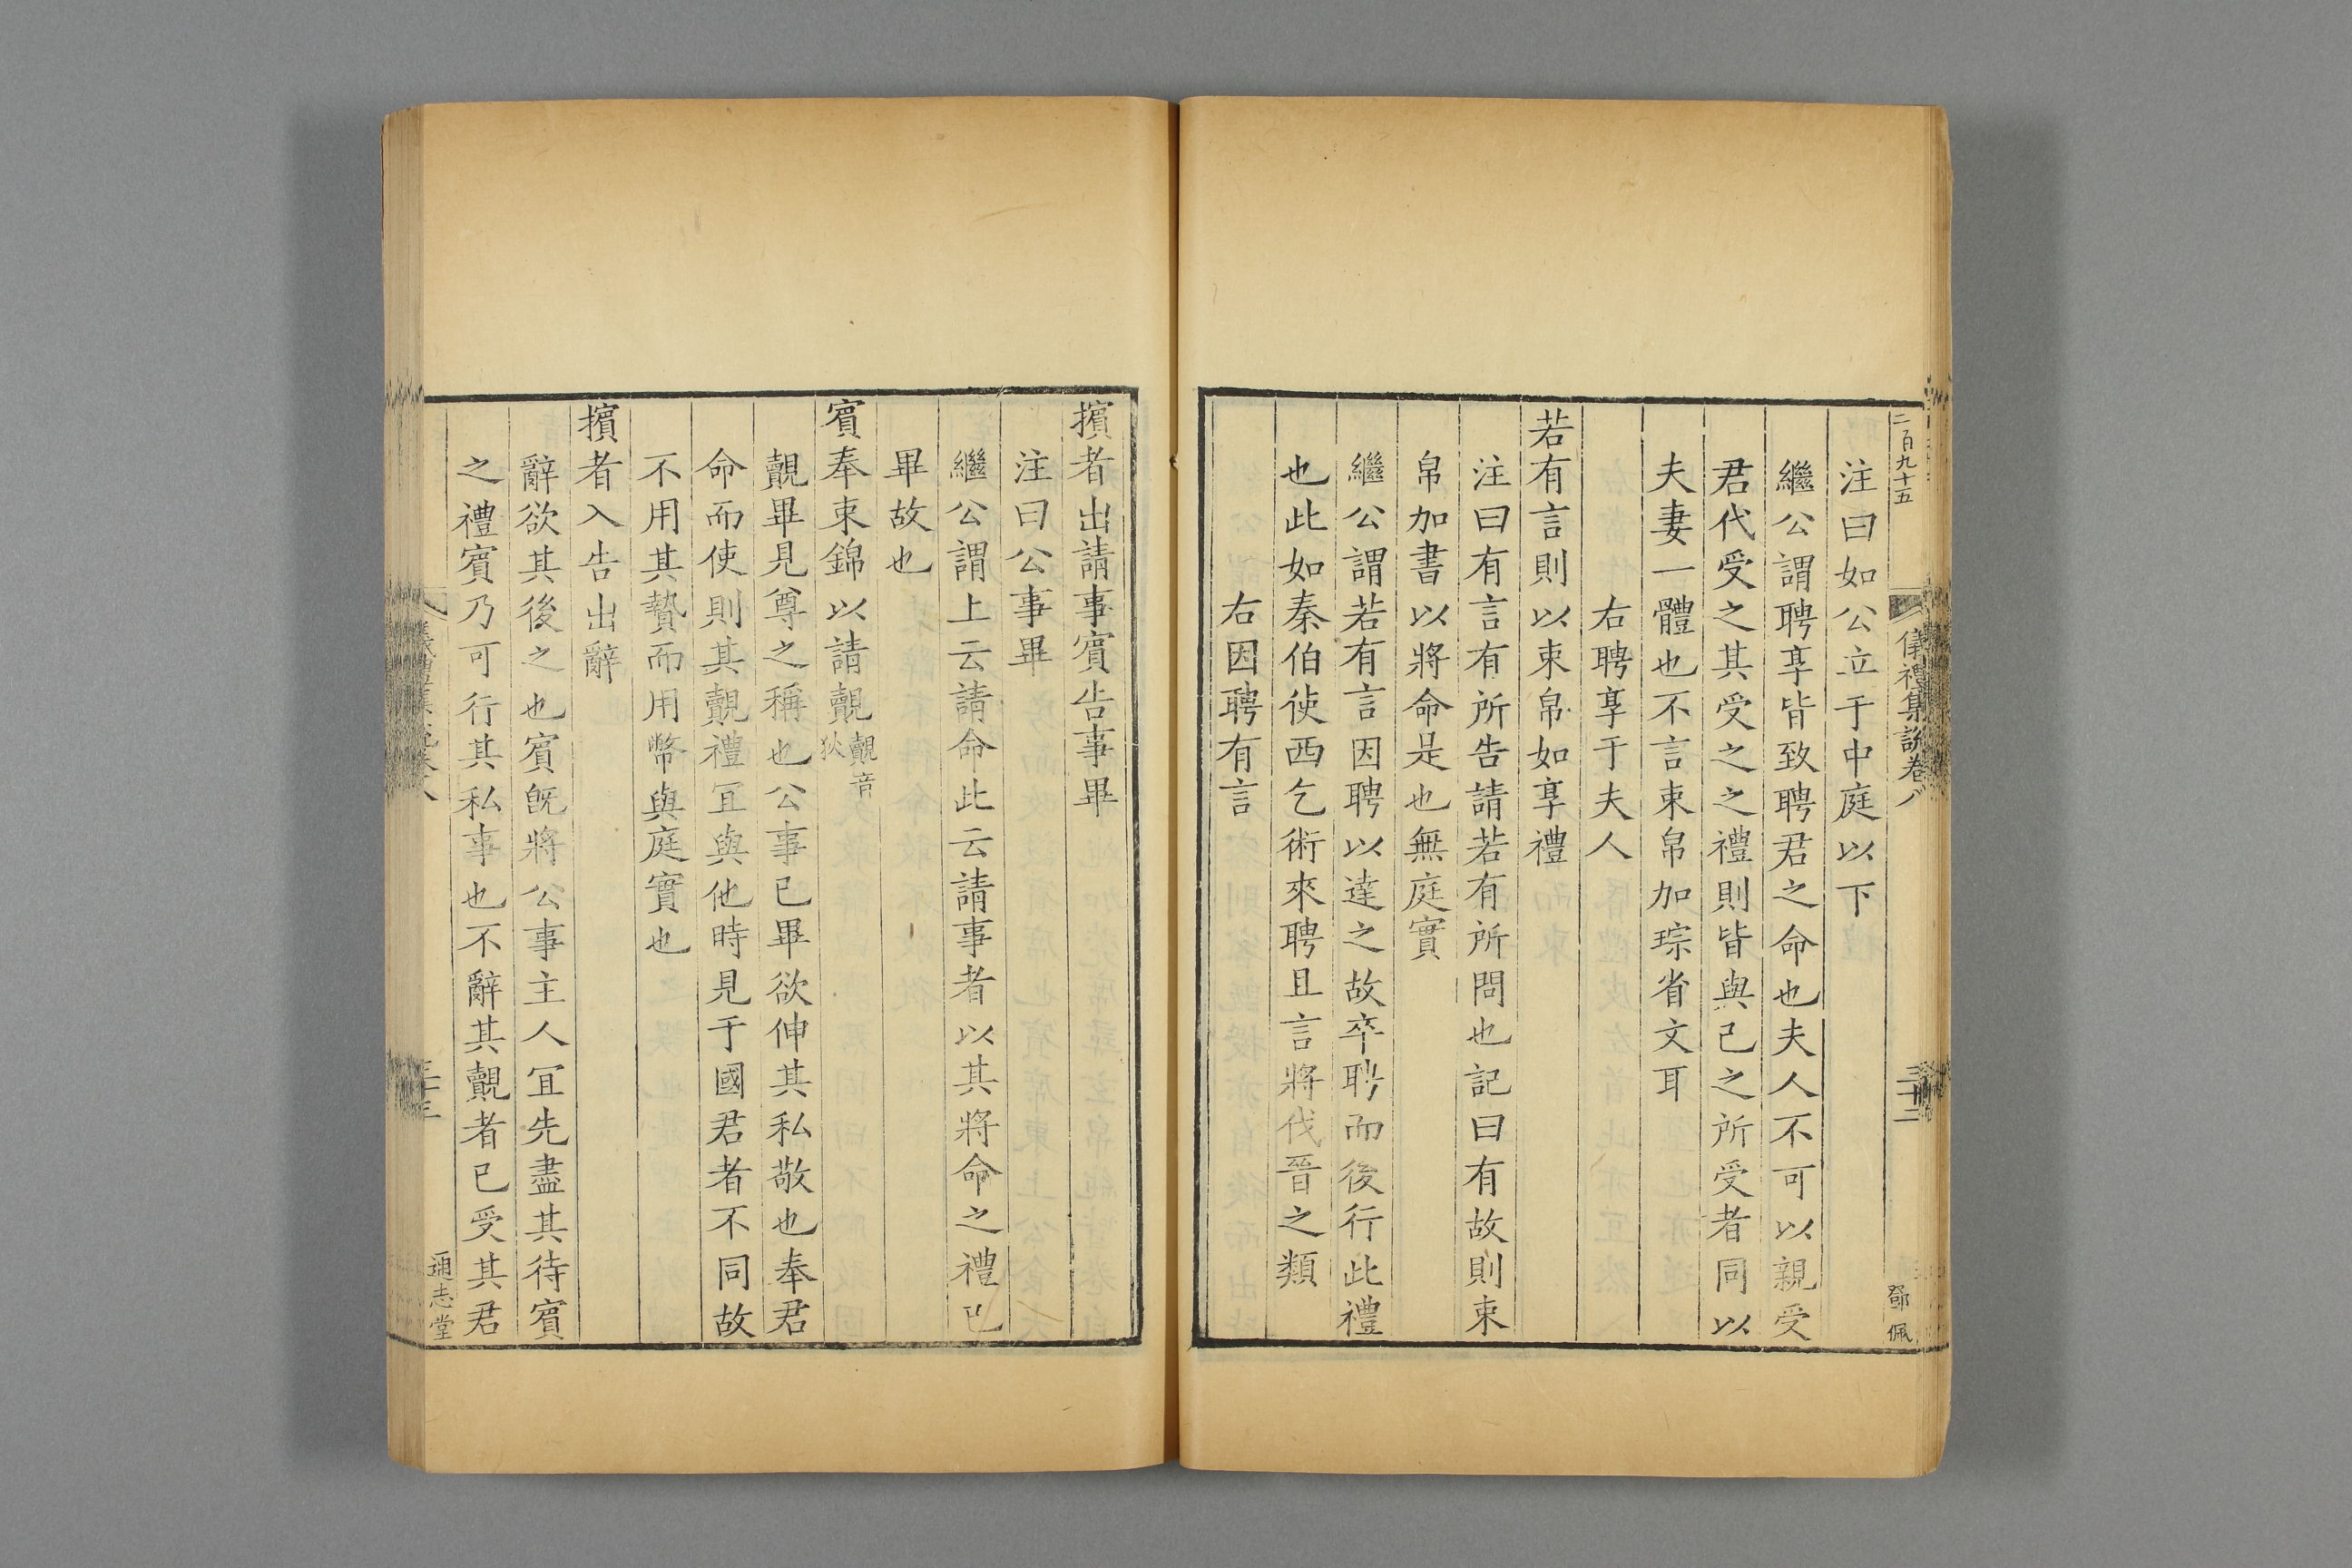 二百九十五
儀禮集說卷八
鄧佩
注曰如公立于中庭以下
繼公謂聘享皆致聘君之命也夫人不可以親受
君代受之其受之之禮則皆與己之所受者同以
夫妻一體也不言束帛加琮省文耳
右聘享于夫人
若有言則以束帛如享禮
注曰有言有所告請若有所問也記曰有故則束
帛加書以將命是也無庭實
繼公謂若有言因聘以達之故卒聘而後行此禮
也此如秦伯使西乞術來聘且言將伐晉之類
右因聘有言
擯者出請事賓告事畢
注曰公事畢
繼公謂上云請命此云請事者以其將命之禮已
畢故也
賓奉束錦以請覿覿音狄
覿畢見尊之稱也公事已畢欲伸其私敬也奉君
命而使則其覿禮冝與他時見于國君者不同故
不用其贄而用幣與庭實也
擯者入告出辭
辭欲其後之也賓旣將公事主人冝先盡其待賓
之禮賓乃可行其私事也不辭其覿者已受其君
通志堂